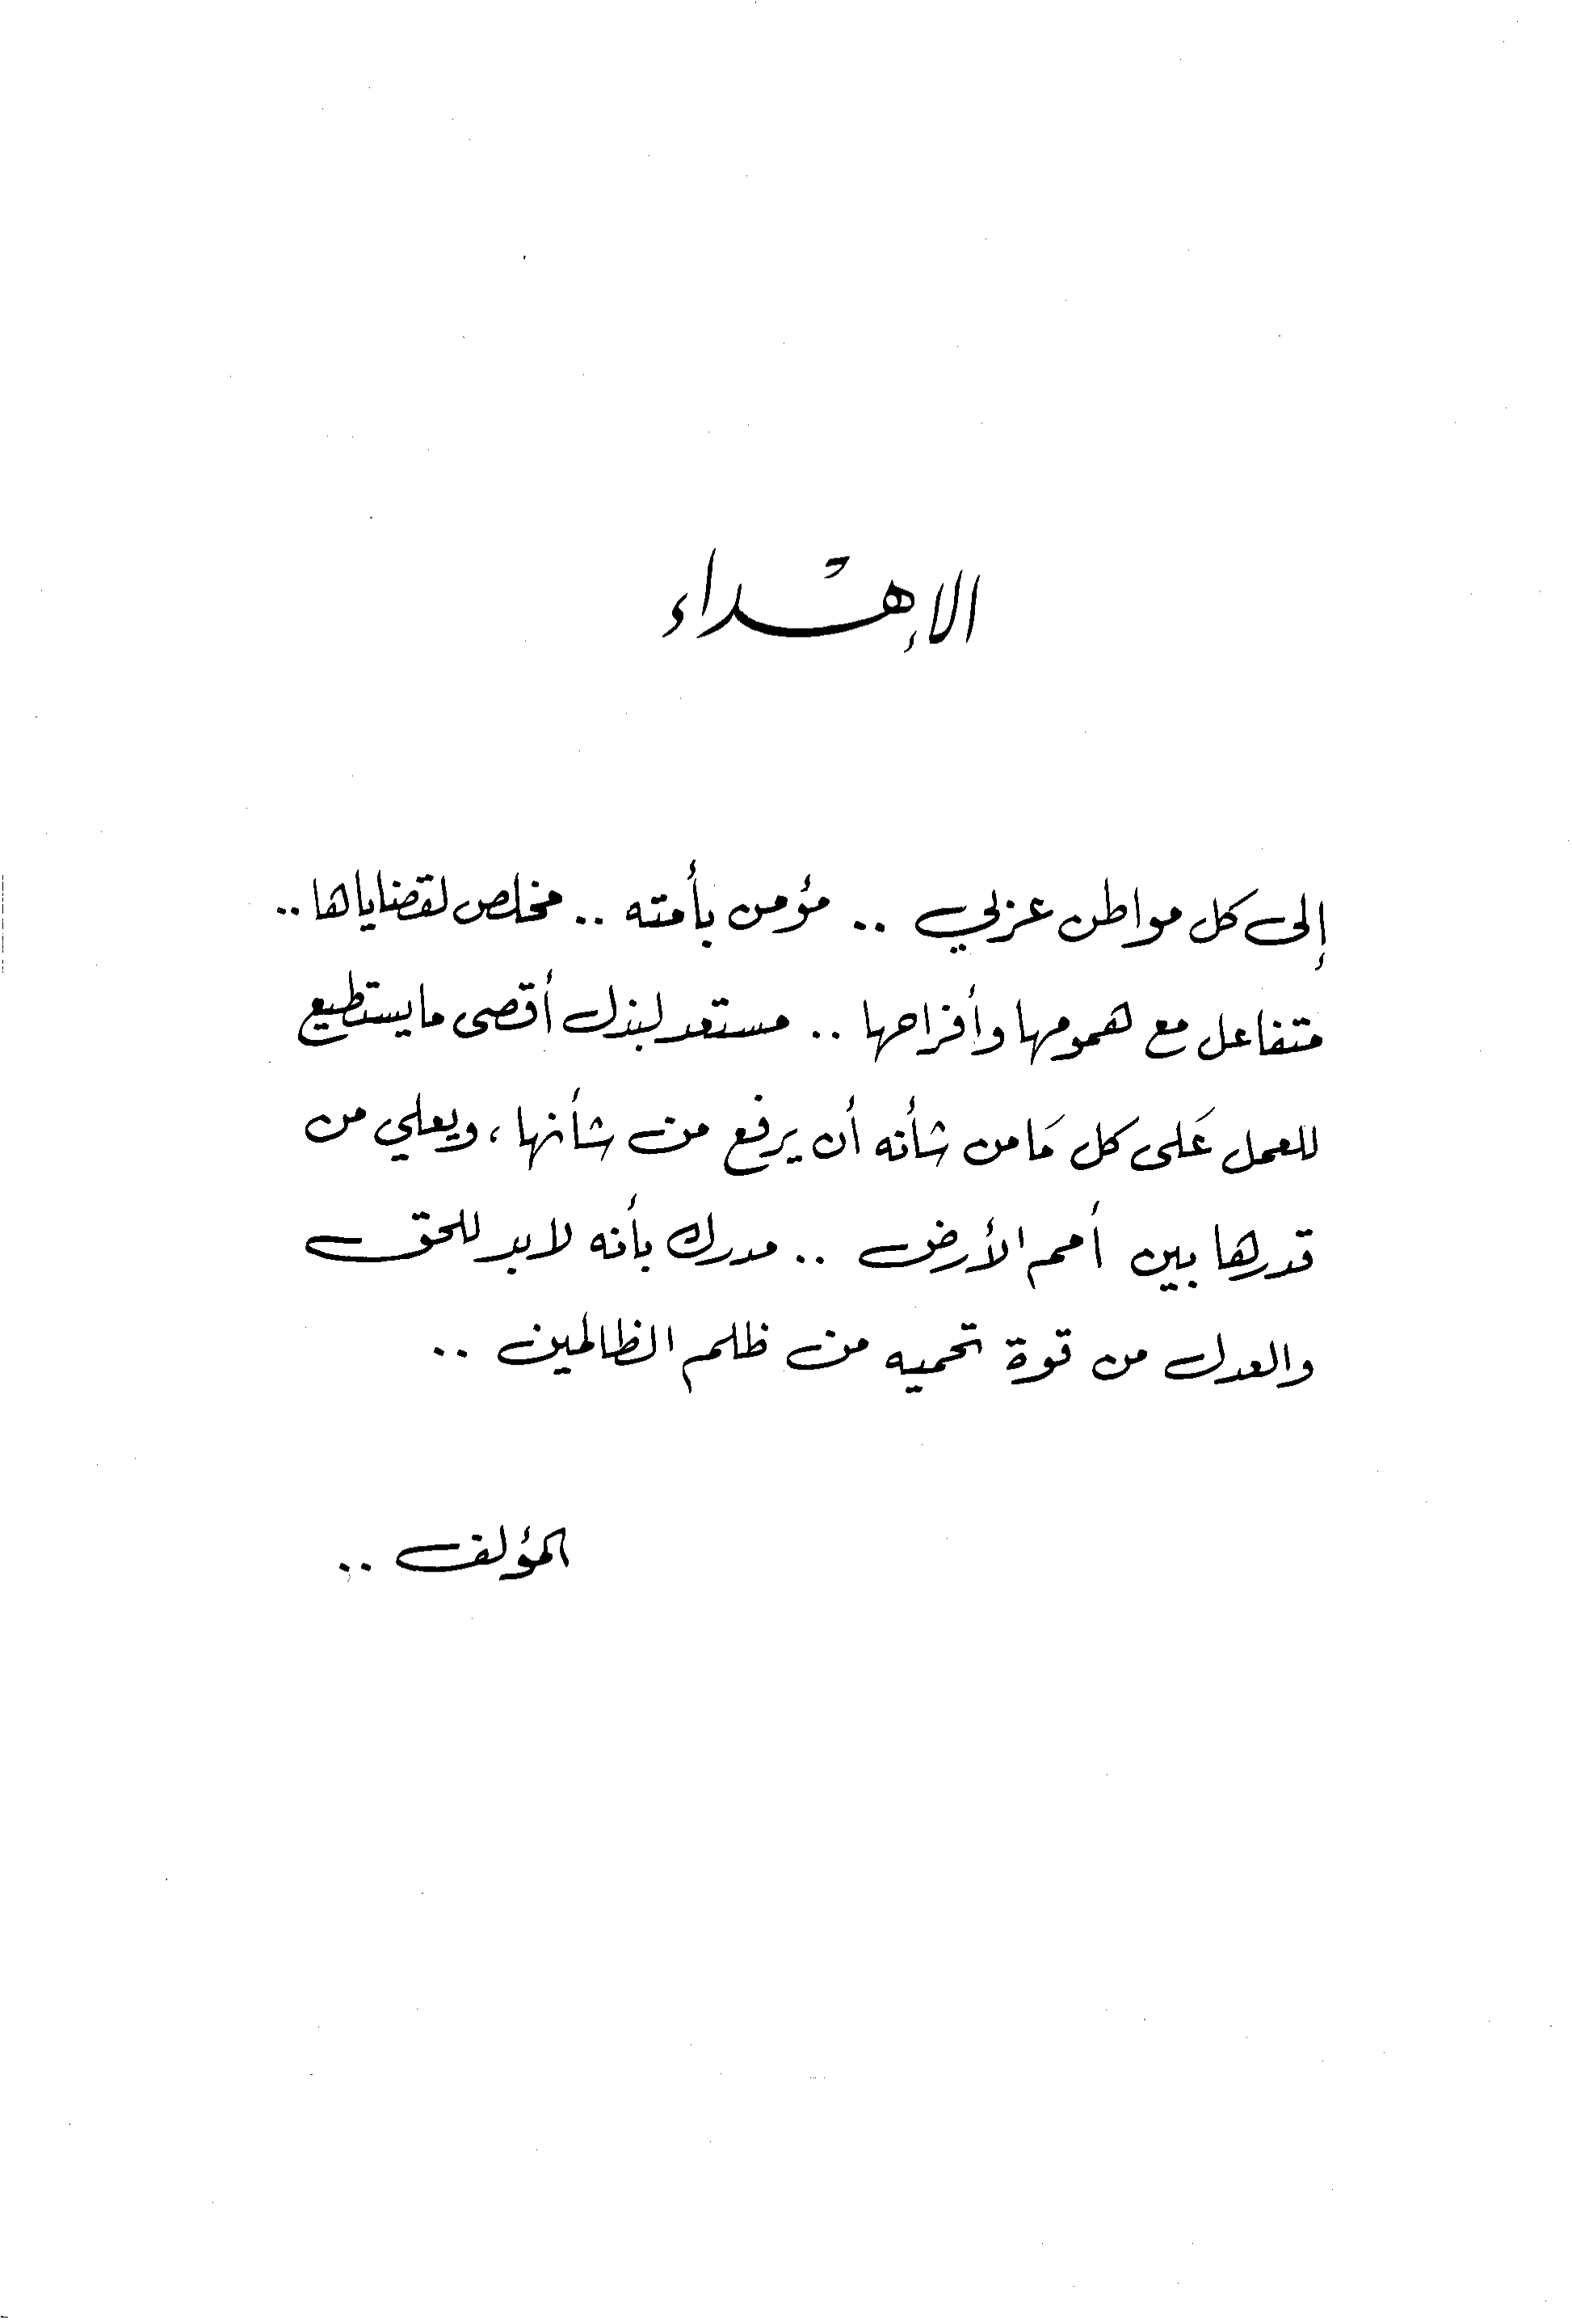 الإهداء
إلى كل مواطن عربي .. مؤمن بأمته .. مخلص لقضاياها ..
متفاعل مع همومها وأفراحها .. مستعد لبذل أقصى ما يستطيع
للعمل عَلى كل مَا من شأنه أن يرفع من شأنها، ويعلي من
قدرها بين أمم الأرض .. مدرك بأنه لابد للحق
والعدل من قوة تحميه من ظلم الظالمين ..
المؤلف ..